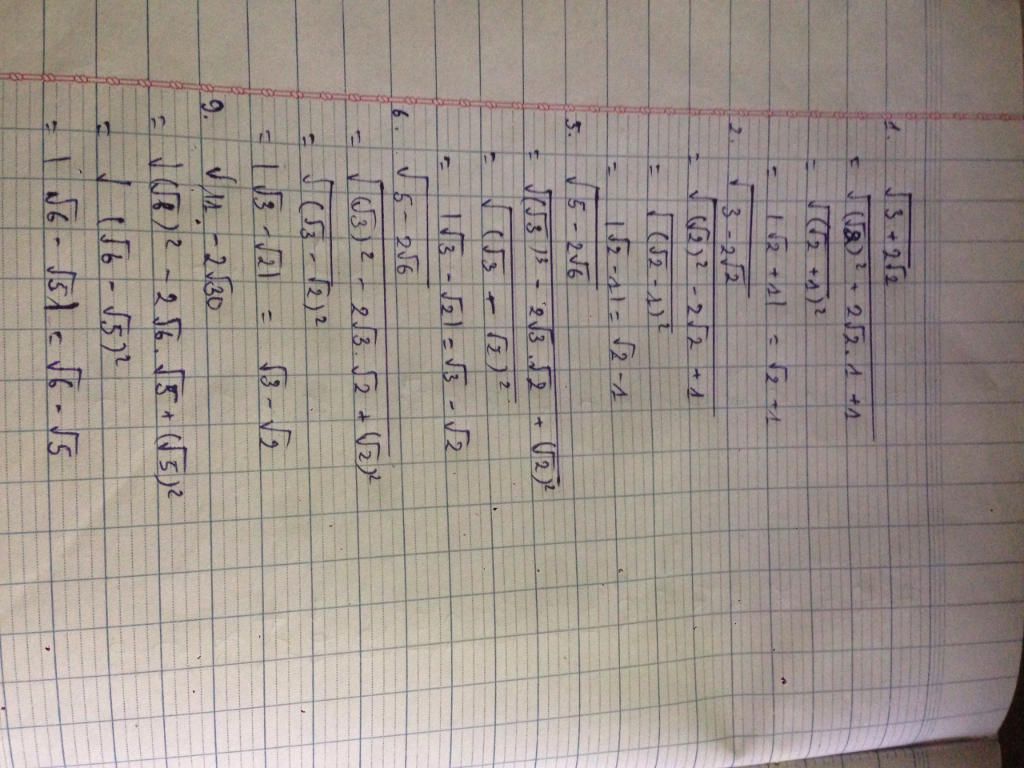 1. √3+2√2
= √(√2)² + 2√2.1 + 1
= √(√2 + 1)²
= |√2 + 1| = √2 + 1
2. √3 - 2√2
= √(√2)² - 2√2 + 1
= √(√2 - 1)²
= |√2 - 1| = √2 - 1
5. √5 - 2√6
= √(√3)² - 2√3.√2 + (√2)²
= √(√3 - √2)²
= |√3 - √2| = √3 - √2
6. √5 - 2√6
= √(√3)² - 2√3.√2 + (√2)²
= √(√3 - √2)²
= |√3 - √2| = √3 - √2
9. √11 - 2√30
= √(√6)² - 2√6.√5 + (√5)²
= √(√6 - √5)²
= |√6 - √5| = √6 - √5